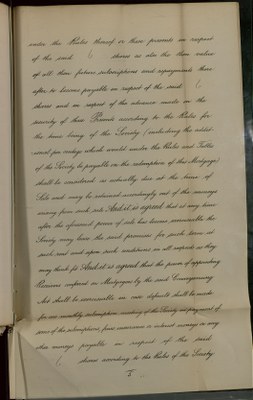 under the Rules thereof or these presents in respect
of the said 6 shares as also the then value
of all their future subscriptions and repayments there-
after to become payable in respect of the said 6
shares and in respect of the advance made on the
security of these Premises according to the Rules for
the time being of the Society (including the additi-
onal percentage which would under the Rules and Tables
of the Society be payable on the redemption of this Mortgage)
shall be considered as actually due at the time of
Sale and may be retained accordingly out of the moneys
arising from such sale And it is agreed that at any time
after the aforesaid power of sale has become exercisable the
Society may lease the said premises for such term at
such rent and upon such conditions in all respects as they
may think fit And it is agreed that the power of appointing
Receivers conferred on Mortgagees by the said Conveyancing
Act shall be exercisable in case default shall be made
for one monthly subscription meeting of the Society in payment of
any of the subscriptions, fines, insurance or interest moneys or any
other moneys payable in respect of the said
6 shares according to the Rules of the Society